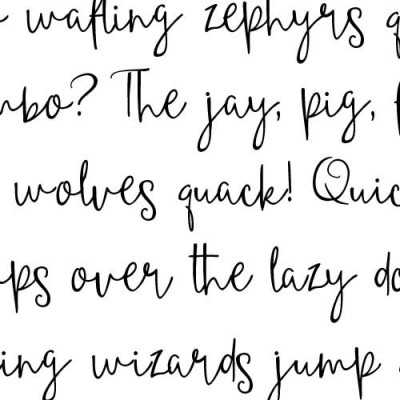 wafting zephyrs q
mbo? The jay, pig, f
wolves quack! Quic
ps over the lazy do
ing wizards jump